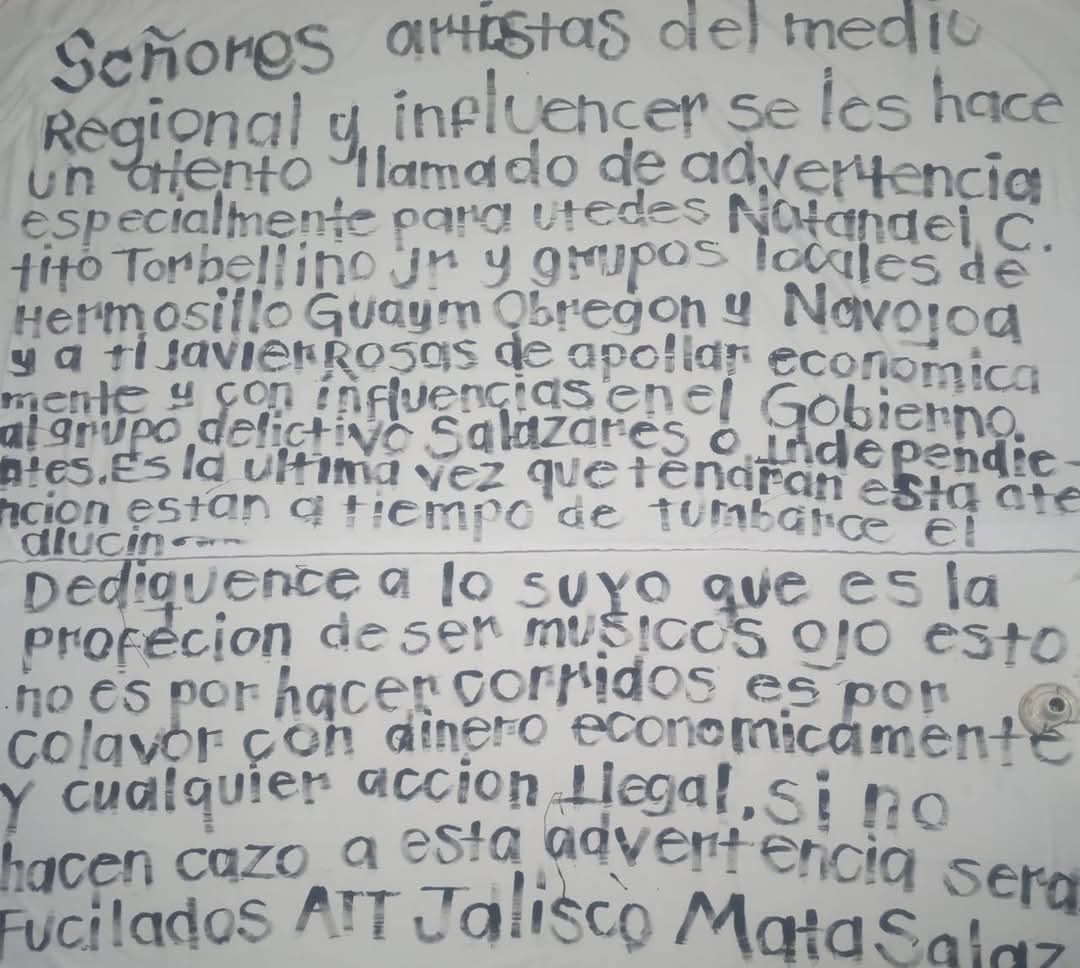 Señores artistas del medio
Regional y influencer se les hace
un atento llamado de advertencia
especialmente para utedes Natandei C.
tito Torbellino Jr y grupos locales de
Hermosillo Guaym Obregon y Navojoa
y a ti Javier Rosas de apollar economica
mente y con influencias en el Gobierno.
al grupo delictivo Salazares o independie
ntes. Es la ultima vez que tendran esta ate
ncion estan a tiempo de tumbarce el
alucin
Dediquence a lo suyo que es la
profecion de ser musicos ojo esto
no es por hacer corridos es por
colavor con dinero economicamente
Y cualquier accion Ilegal, si no
hacen cazo a esta advertencia sera
Fucilados ATT Jalisco Mata Salaz